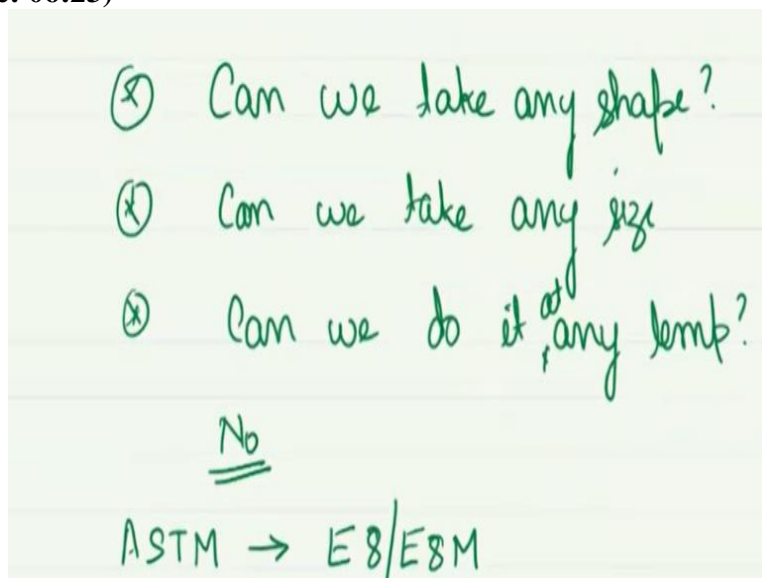 ⊗ Can we take any shape?
⊗ Can we take any size
⊗ Can we do it at any temp?
No
ASTM → E8/E8M